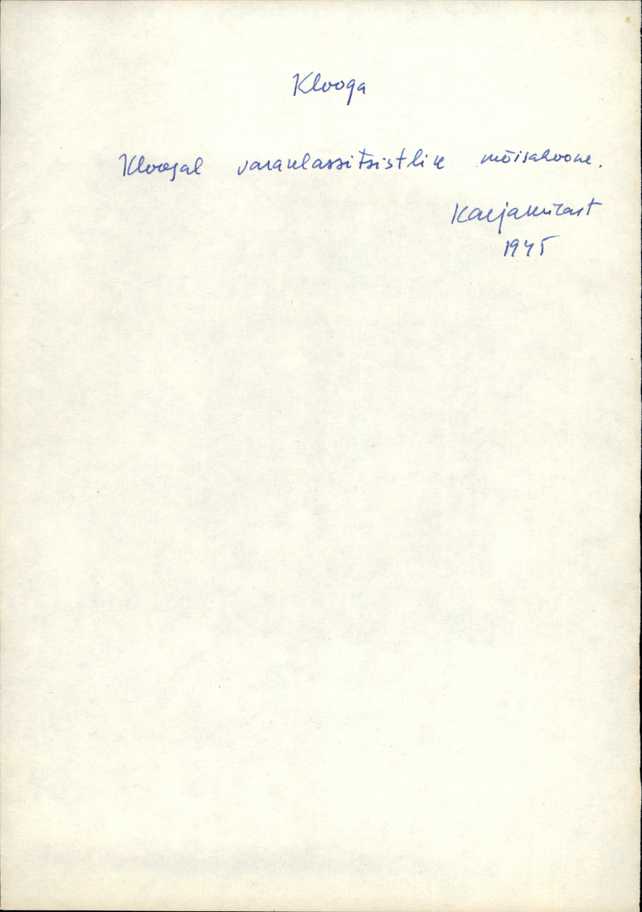 Klooga
Kloogal varaklassitsistlik mõisahoone.
1975